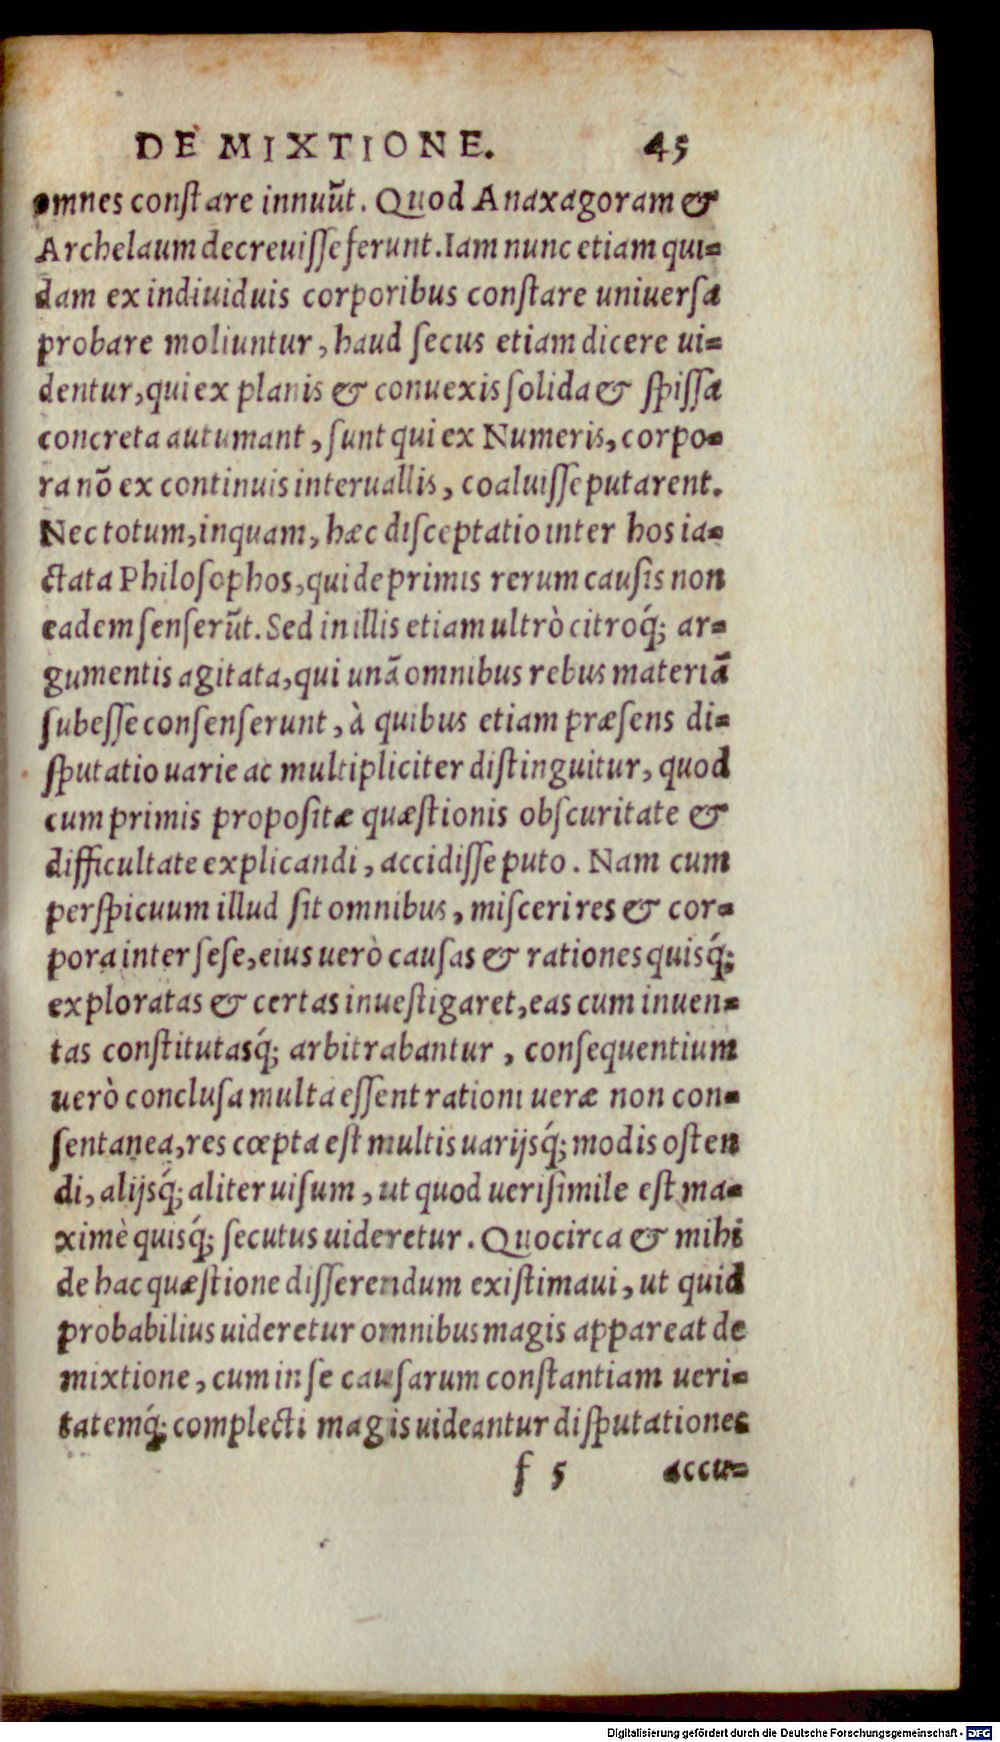 DE MIXTIONE. 45
omnes conſtare innuũt. Quod Anaxagoram &
Archelaum decreuiſſe ferunt. Iam nunc etiam qui-
dam ex indiuiduis corporibus conſtare uniuerſa
probare moliuntur, haud ſecus etiam dicere ui-
dentur, qui ex planis & conuexis ſolida & ſpiſſa
concreta autumant, ſunt qui ex Numeris, corpo-
ra nõ ex continuis interuallis, coaluiſſe putarent.
Nec totum, inquam, hæc diſceptatio inter hos ia-
ctata Philoſophos, qui de primis rerum cauſis non
eadem ſenſerũt. Sed in illis etiam ultrò citroq́; ar-
gumentis agitata, qui unã omnibus rebus materiã
ſubeſſe conſenſerunt, à quibus etiam præſens di-
ſputatio uarie ac multipliciter diſtinguitur, quod
cum primis propoſitæ quæſtionis obſcuritate &
difficultate explicandi, accidiſſe puto. Nam cum
perſpicuum illud ſit omnibus, miſceri res & cor-
pora inter ſeſe, eius uerò cauſas & rationes quisq́;
exploratas & certas inueſtigaret, eas cum inuen-
tas conſtitutasq́; arbitrabantur, conſequentium
uerò concluſa multa eſſent rationi ueræ non con-
ſentanea, res cœpta eſt multis uarijsq́; modis oſten
di, alijsq́; aliter uiſum, ut quod ueriſimile eſt ma-
ximè quisq́; ſecutus uideretur. Quocirca & mihi
de hac quæſtione diſſerendum exiſtimaui, ut quid
probabilius uideretur omnibus magis appareat de
mixtione, cum in ſe cauſarum conſtantiam ueri-
tatemq́; complecti magis uideantur diſputationes
f 5 accu-
Digitalisierung gefördert durch die Deutsche Forschungsgemeinschaft - DFG